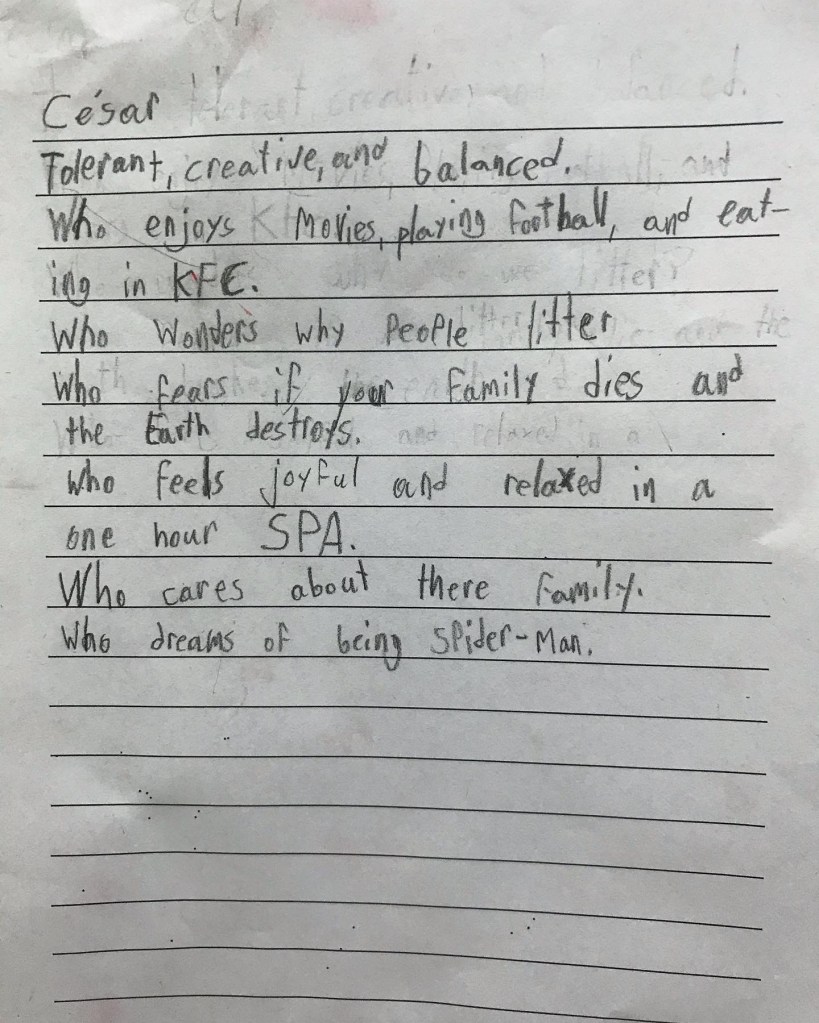 César
Tolerant, creative, and balanced.
Who enjoys Movies, playing football, and eat-
ing in KFC.
Who Wonders why People litter
Who fears if your Family dies and
the Earth destroys.
Who feels joyful and relaxed in a
one hour SPA.
Who cares about there Family.
Who dreams of being Spider-Man.